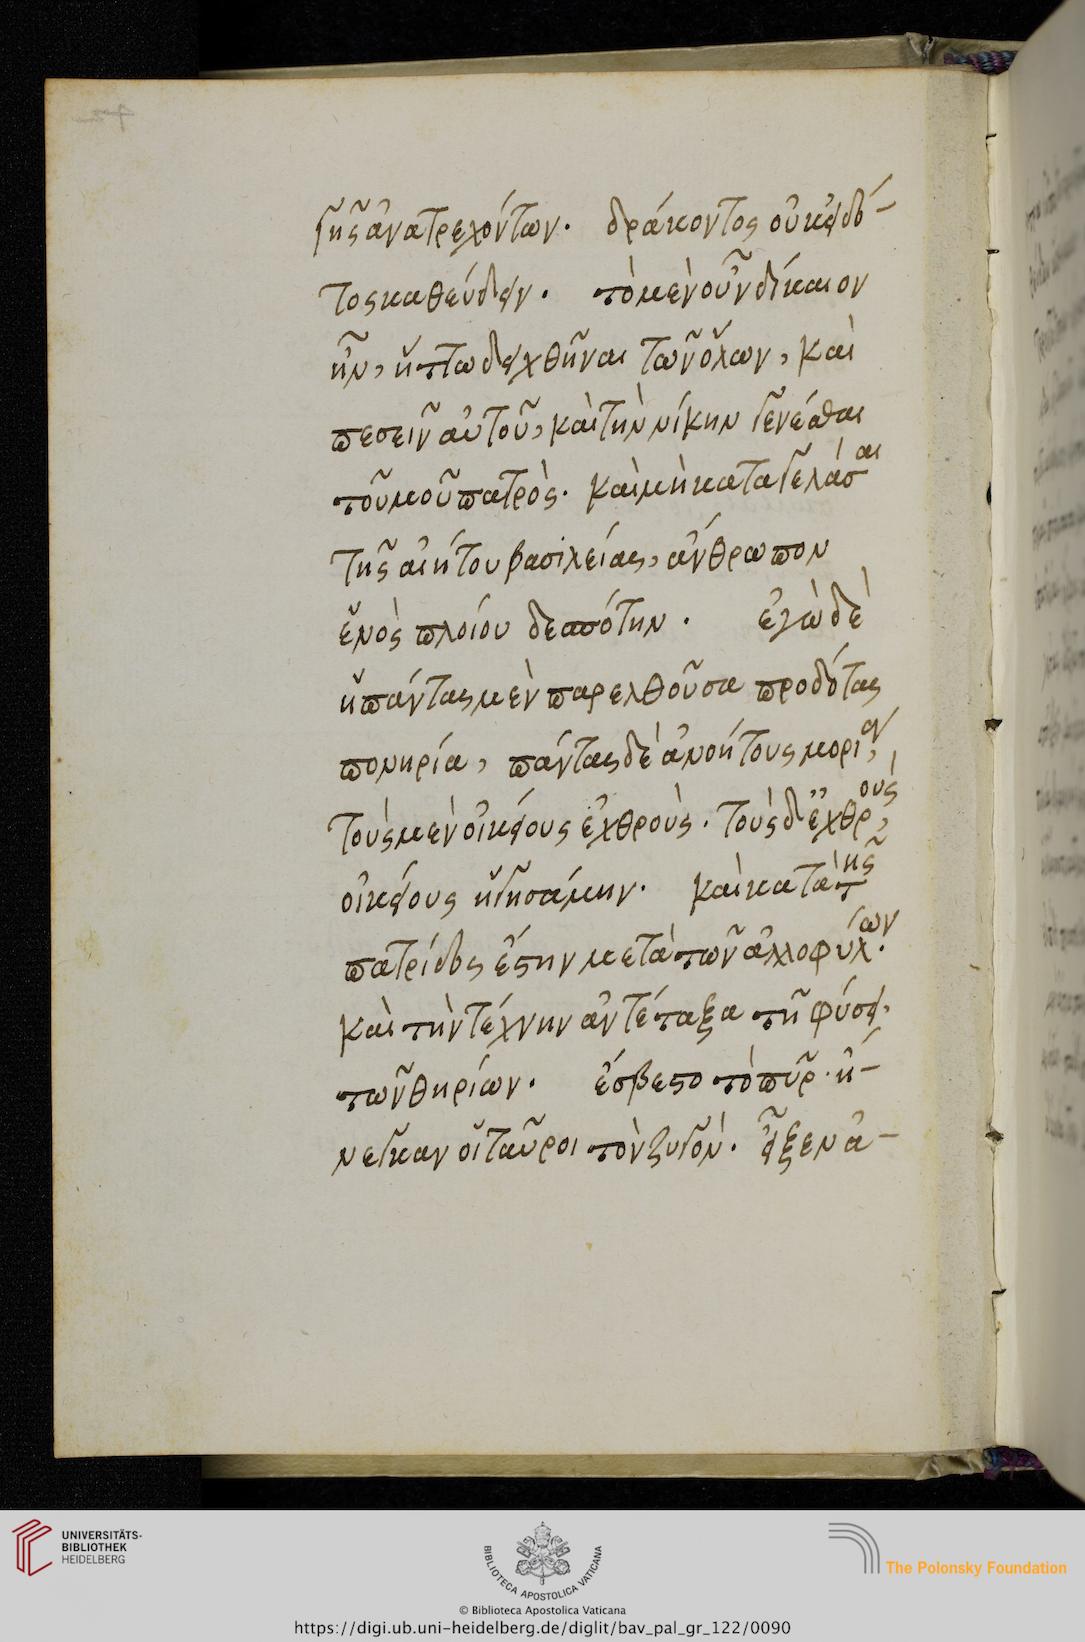 γῆς ἀνατρεχόντων. δράκοντος οὐκ εἰδό-
τος καθεύδειν. τὸ μὲν οὖν δίκαιον
ἦν, ἡττω δειχθῆναι τῶν ὅλων, καὶ
πεσεῖν αὐτοῦ, καὶ τὴν νίκην γενέσθαι
τοῦμοῦ πατρὸς. καὶ μὴ καταγελάσαι
τῆς αἰήτου βασιλείας, ἄνθρωπον
ἑνὸς πλοίου δεσπότην. ἐγὼ δὲ
ἡ πάντας μὲν παρελθοῦσα προδότας
πονηρία, πάντας δὲ ἀνοήτους μορίᾳ,
τοὺς μὲν οἰκείους ἐχθροὺς. τοὺς δ' ἐχθροὺς,
οἰκείους ἡγησάμην. καὶ κατὰ τῆς
πατρίδος ἔστην μετὰ τῶν ἀλλοφύλων.
καὶ τὴν τέχνην ἀντέταξα τῆ φύσει.
τῶν θηρίων. ἔσβεστο τὸ πῦρ. ἤ-
νεγκαν οἱ ταῦροι τὸν ζυγόν. εἶξεν ἀ-
UNIVERSITÄTS-
BIBLIOTHEK
HEIDELBERG
BIBLIOTECA APOSTOLICA VATICANA
The Polonsky Foundation
© Biblioteca Apostolica Vaticana
https://digi.ub.uni-heidelberg.de/diglit/bav_pal_gr_122/0090